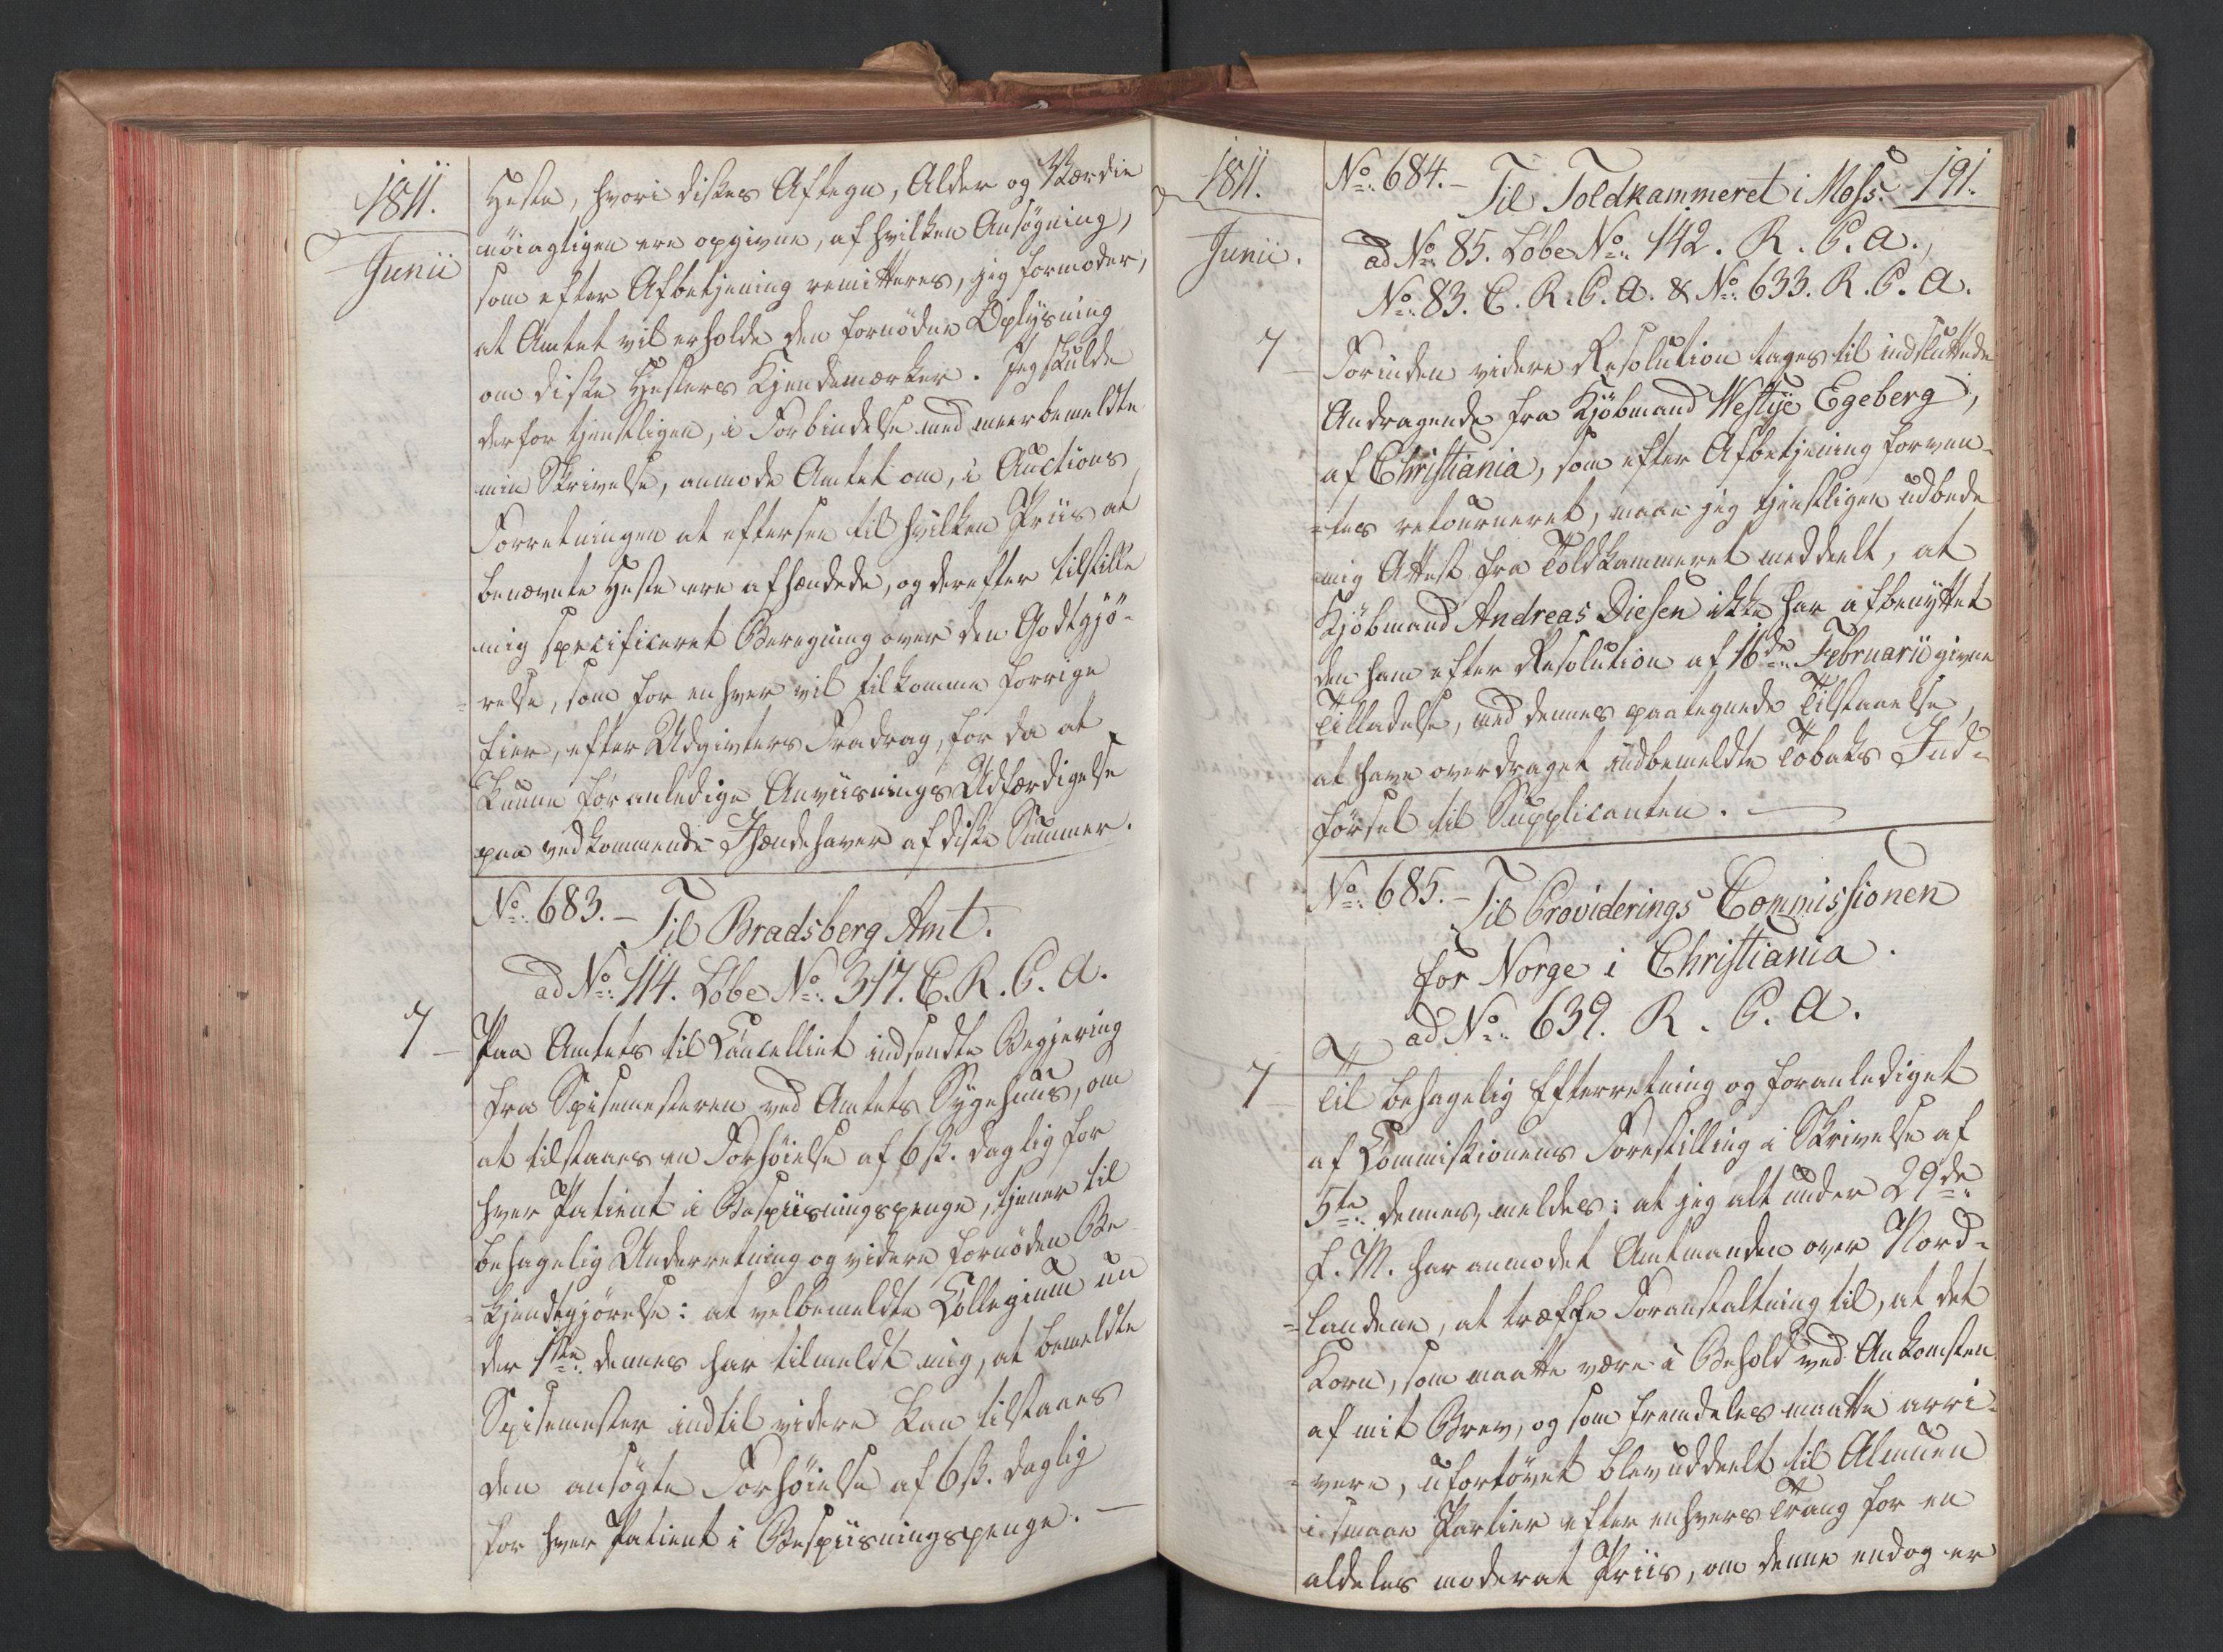 1811.
Junii
Heste, hvori disses Aftegn, Alder og Værdie
nöiagtigen ere opgivne, af hvilken Ansögning,
som efter Afbetjening remitteres, jeg formoder,
at Amtet vil erholde den fornödne Oplysning
om disse Hesters Kjendemærker. Jeg skulde
derfor tjenstligen, i Forbindelse med meerbemeldte
min Skrivelse, anmode Amtet om, i Auctions
Forretningen at eftersee til hvilken Priis at
benævnte Heste ere afhændede, og derefter tilstille
mig specificeret Beregning over den Godtgjö-
-relse, som for enhver vil tilkomme forrige
Eier, efter Udgivters Fradrag, for da at
kunne foranledige Anviisnings Udfærdigelse
paa vedkommende Ihændehaver af disse Summer.
No. 683. - Til Bradsberg Amt.
ad No. 114. Löbe No. 317. C. R. P. A.
7 -
Paa Amtets til Cancelliet indsendte Begjering
fra Spisemesteren ved Amtets Sygehuus, om
at tilstaaes en Forhöielse af 6 ß. daglig for
hver Patient i Bespiisningspenge, tjener til
behagelig Underretning og videre fornöden Be
-kjendtgjörelse: at velbemeldte Collegium un
der 1ste dennes har tilmeldt mig, at bemeldte
Spisemester indtil videre kan tilstaaes
den ansögte Forhöielse af 6 ß. daglig
for hver Patient i Bespiisningspenge. -
1811.
Junii.
No. 684. - Til Toldkammeret i Moss. 191.
ad No. 85. Löbe No. 142. R. P. A.,
No. 83. C. R. P. A. & No. 633. R. P. A.
7 -
Forinden videre Resolution tages til indsluttede
Andragende fra Kjöbmand Westye Egeberg,
af Christiania, som efter Afbetjening forven-
-tes retourneret, maae jeg tjenstligen udbede
mig Attest fra Toldkammeret meddeelt, at
Kjöbmand Andreas Diesen ikke har afbenyttet
den ham efter Resolution af 16de Februarii givne
Tilladelse, med dennes paategnede Tilstaaelse,
at have overdraget indbemeldte Tobaks Ind-
försel til Supplicanten. -
No. 685. - Til Provideringss Commissionen
for Norge i Christiania.
ad No. 639. R. P. A.
7 -
Til behagelig Efterretning og foranlediget
af Commissionens Forestilling i Skrivelse af
5te dennes, meldes: at jeg alt under 29de
f. M. har anmodet Amtmanden over Nord-
-landene, at træffe Foranstaltning til, at det
Korn, som maatte være i Behold ved Ankomsten
af mit Brev, og som fremdeles maatte arri-
-vere, ufortövet blev uddeelt til Almuen
i smaae Partier efter enhvers Trang for en
aldeles moderat Priis, om denne endog er